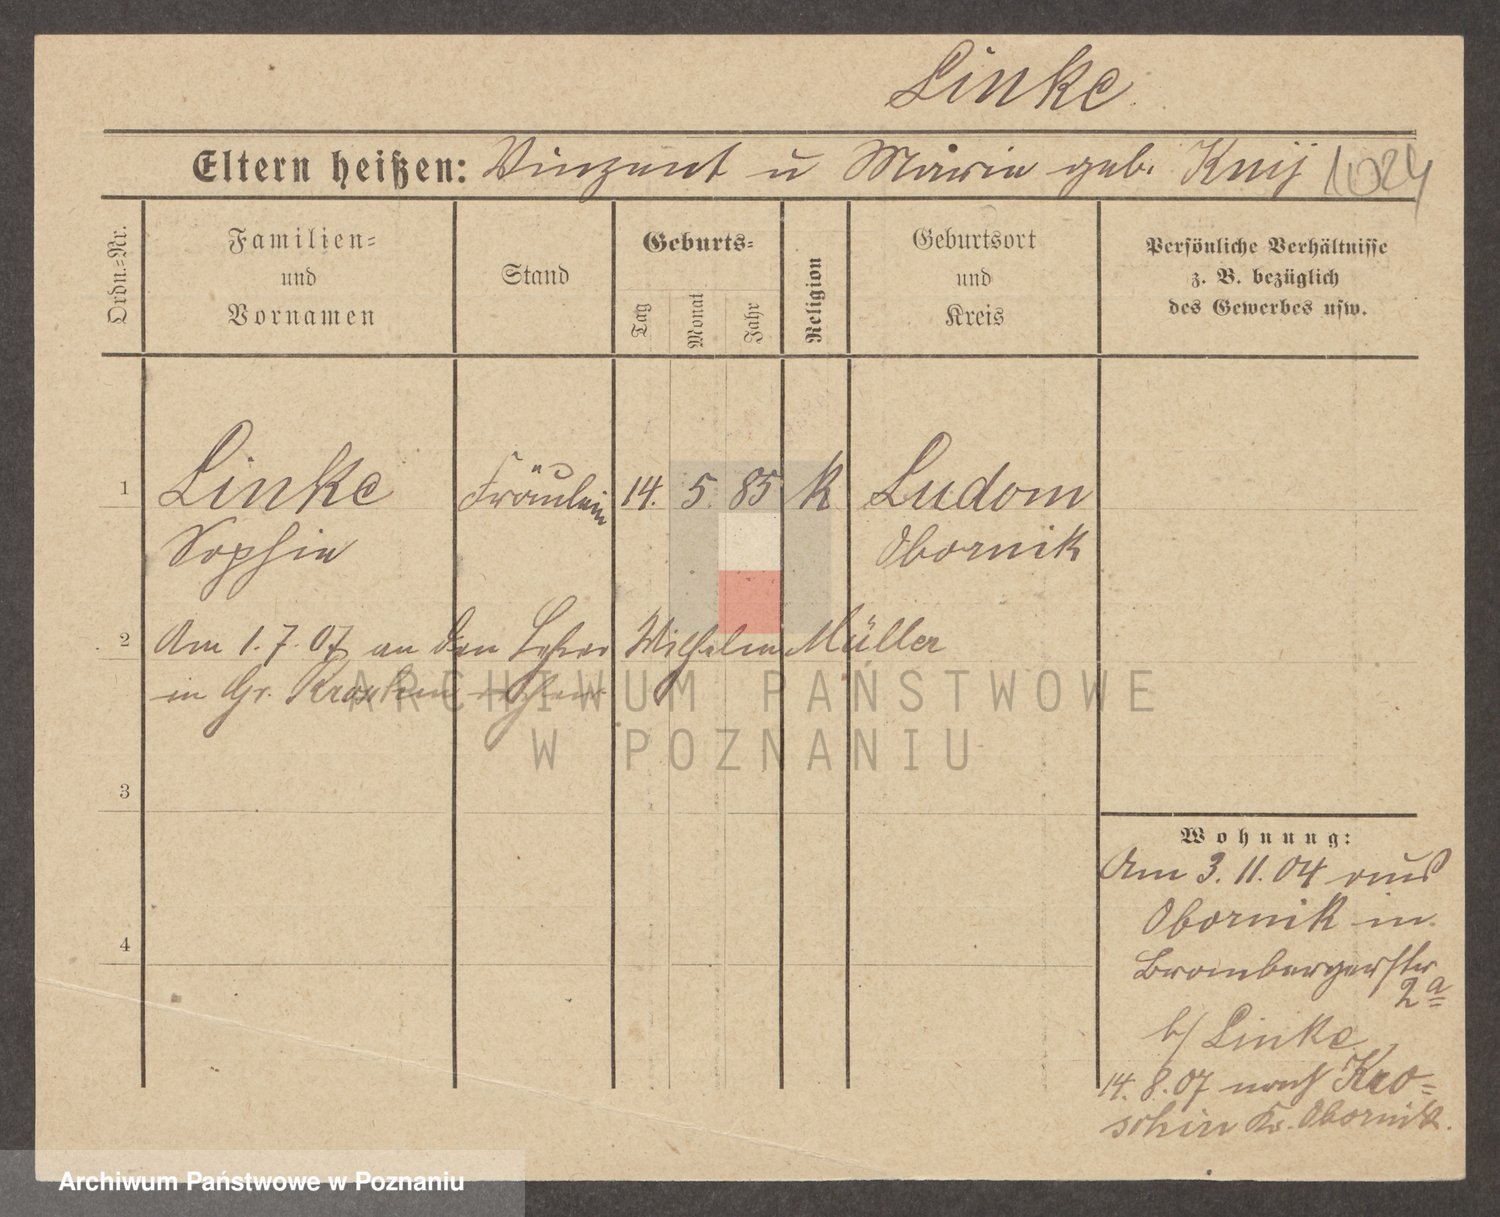 Linke
Eltern heißen: Vinzent u Marie geb. Knij 1024
Ordn.-Nr.
Familien-
und
Vornamen
Stand
Geburts-
Tag
Monat
Jahr
Religion
Geburtsort
und
Kreis
Persönliche Verhältnisse
z. B. bezüglich
des Gewerbes usw.
1 Linke Fräulein 14. 5. 85 K Ludom
Sophie Obornik
2 Am 1. 7. 07 an den Lehrer Wilhelm Müller
in Gr. Kroschin
ARCHIWUM PAŃSTWOWE
W POZNANIU
3
4
Wohnung:
Am 3. 11. 04 aus
Obornik in
Brombergerstr
2a
b/ Linke
14. 8. 07 nach Kro-
schin Kr. Obornik.
Archiwum Państwowe w Poznaniu